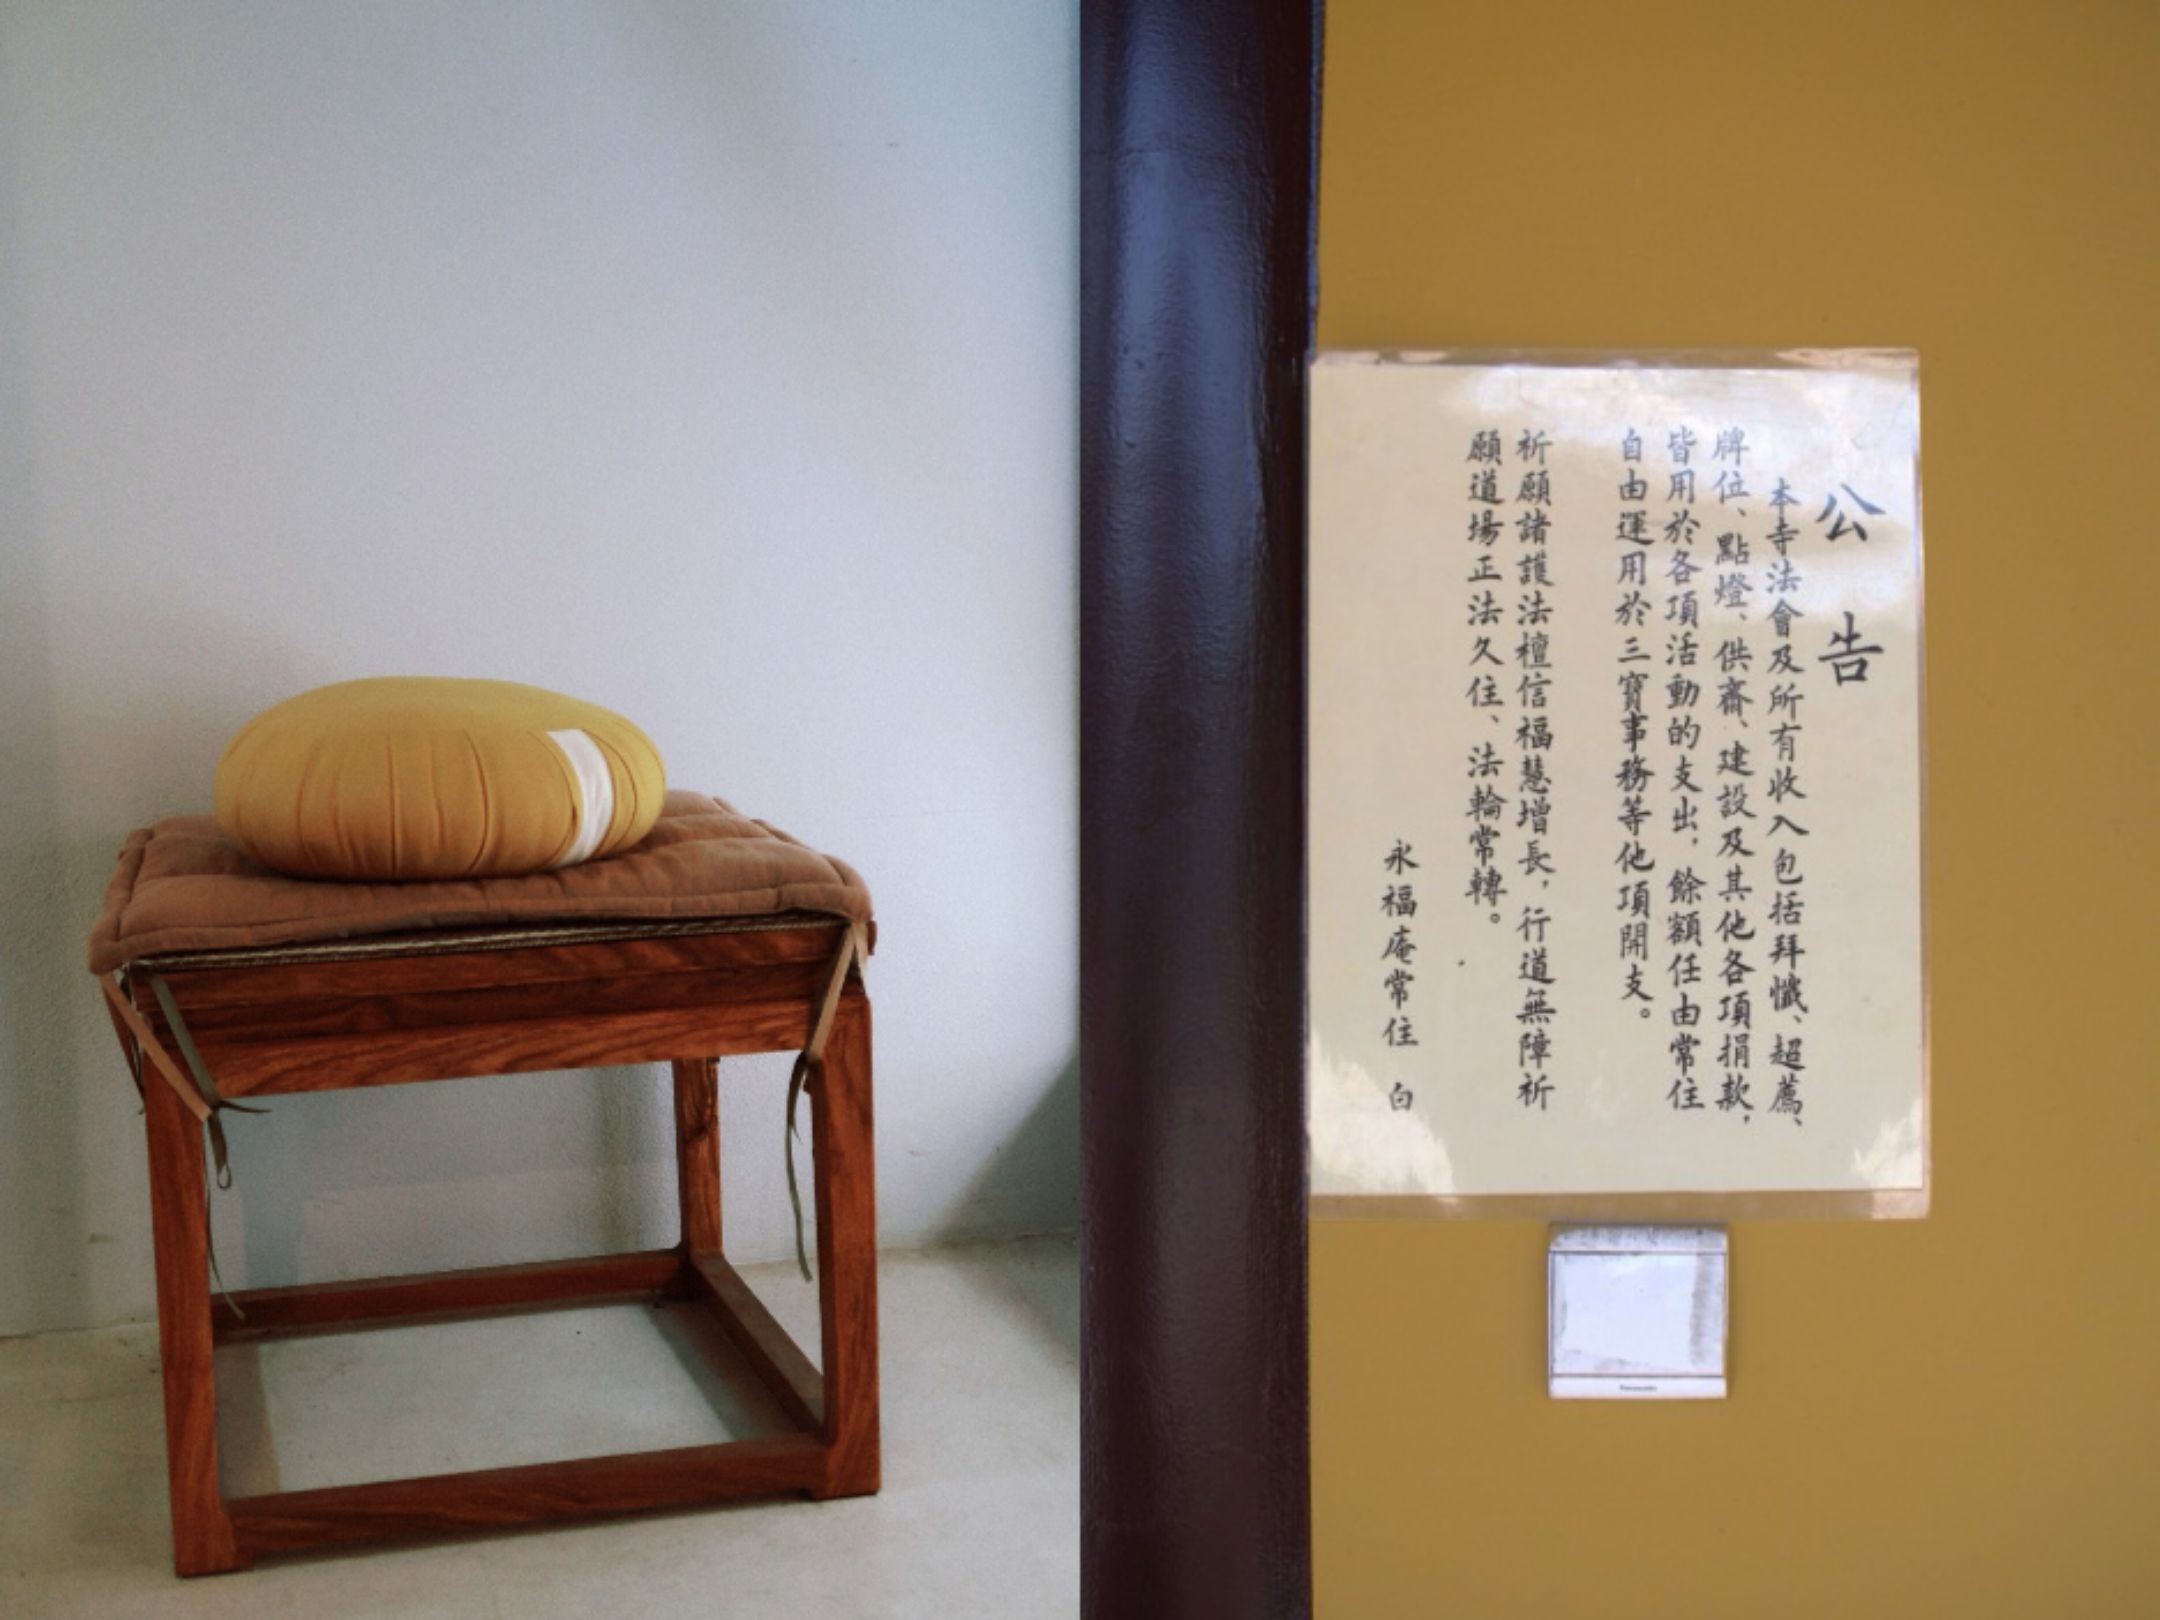 公告
本寺法會及所有收入包括拜懺、超薦、
牌位、點燈、供齋、建設及其他各項捐款，
皆用於各項活動的支出，餘額任由常住
自由運用於三寶事務等他項開支。
祈願諸護法檀信福慧增長，行道無障祈
願道場正法久住、法輪常轉。
永福庵常住 白
Panasonic